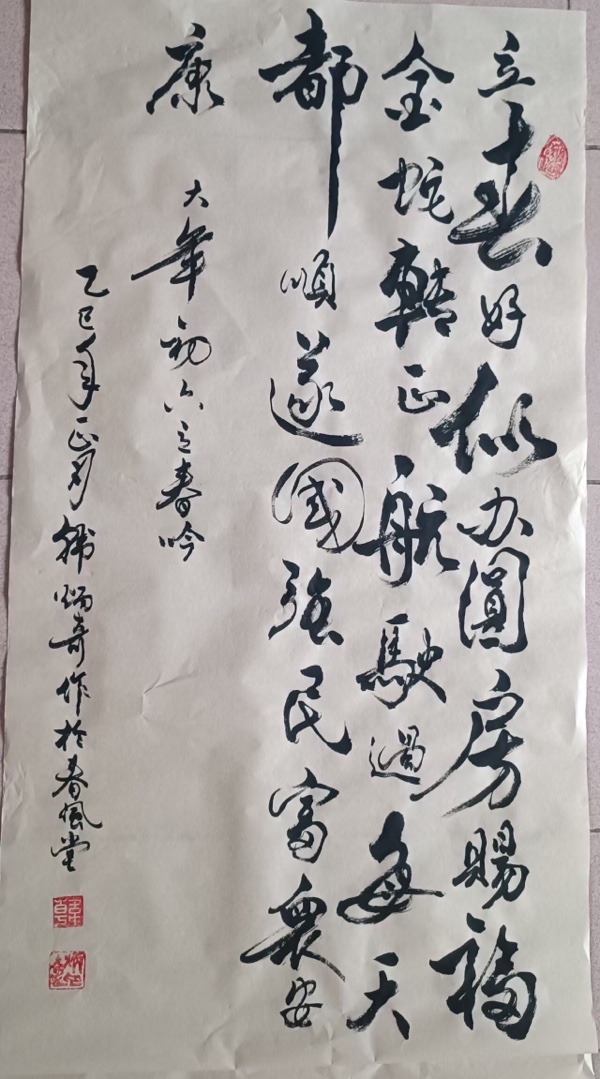 立春好似办圓房賜福
金蛇轉正航駛過每天
都順遂國强民富衆安
康 大年初六立春吟
乙巳年正月韓炳奇作於春風堂